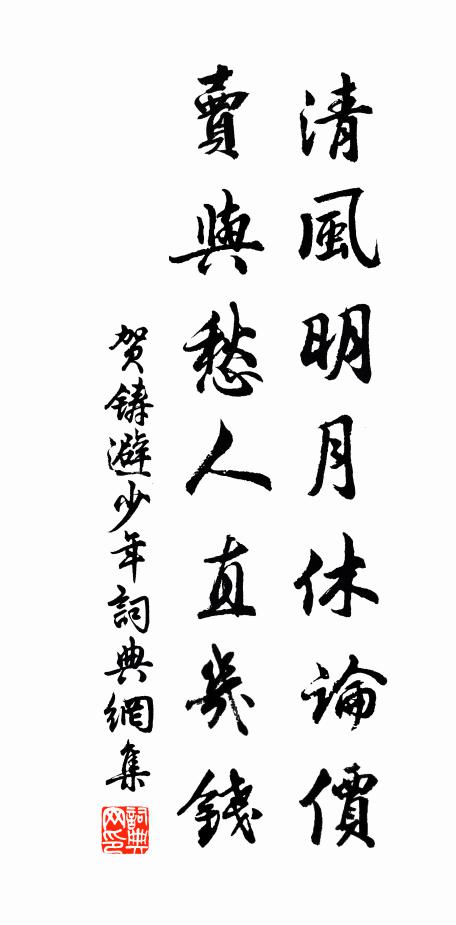 清風明月休論價
賣與愁人直幾錢
賀鑄避少年詞典網集
詞典網印